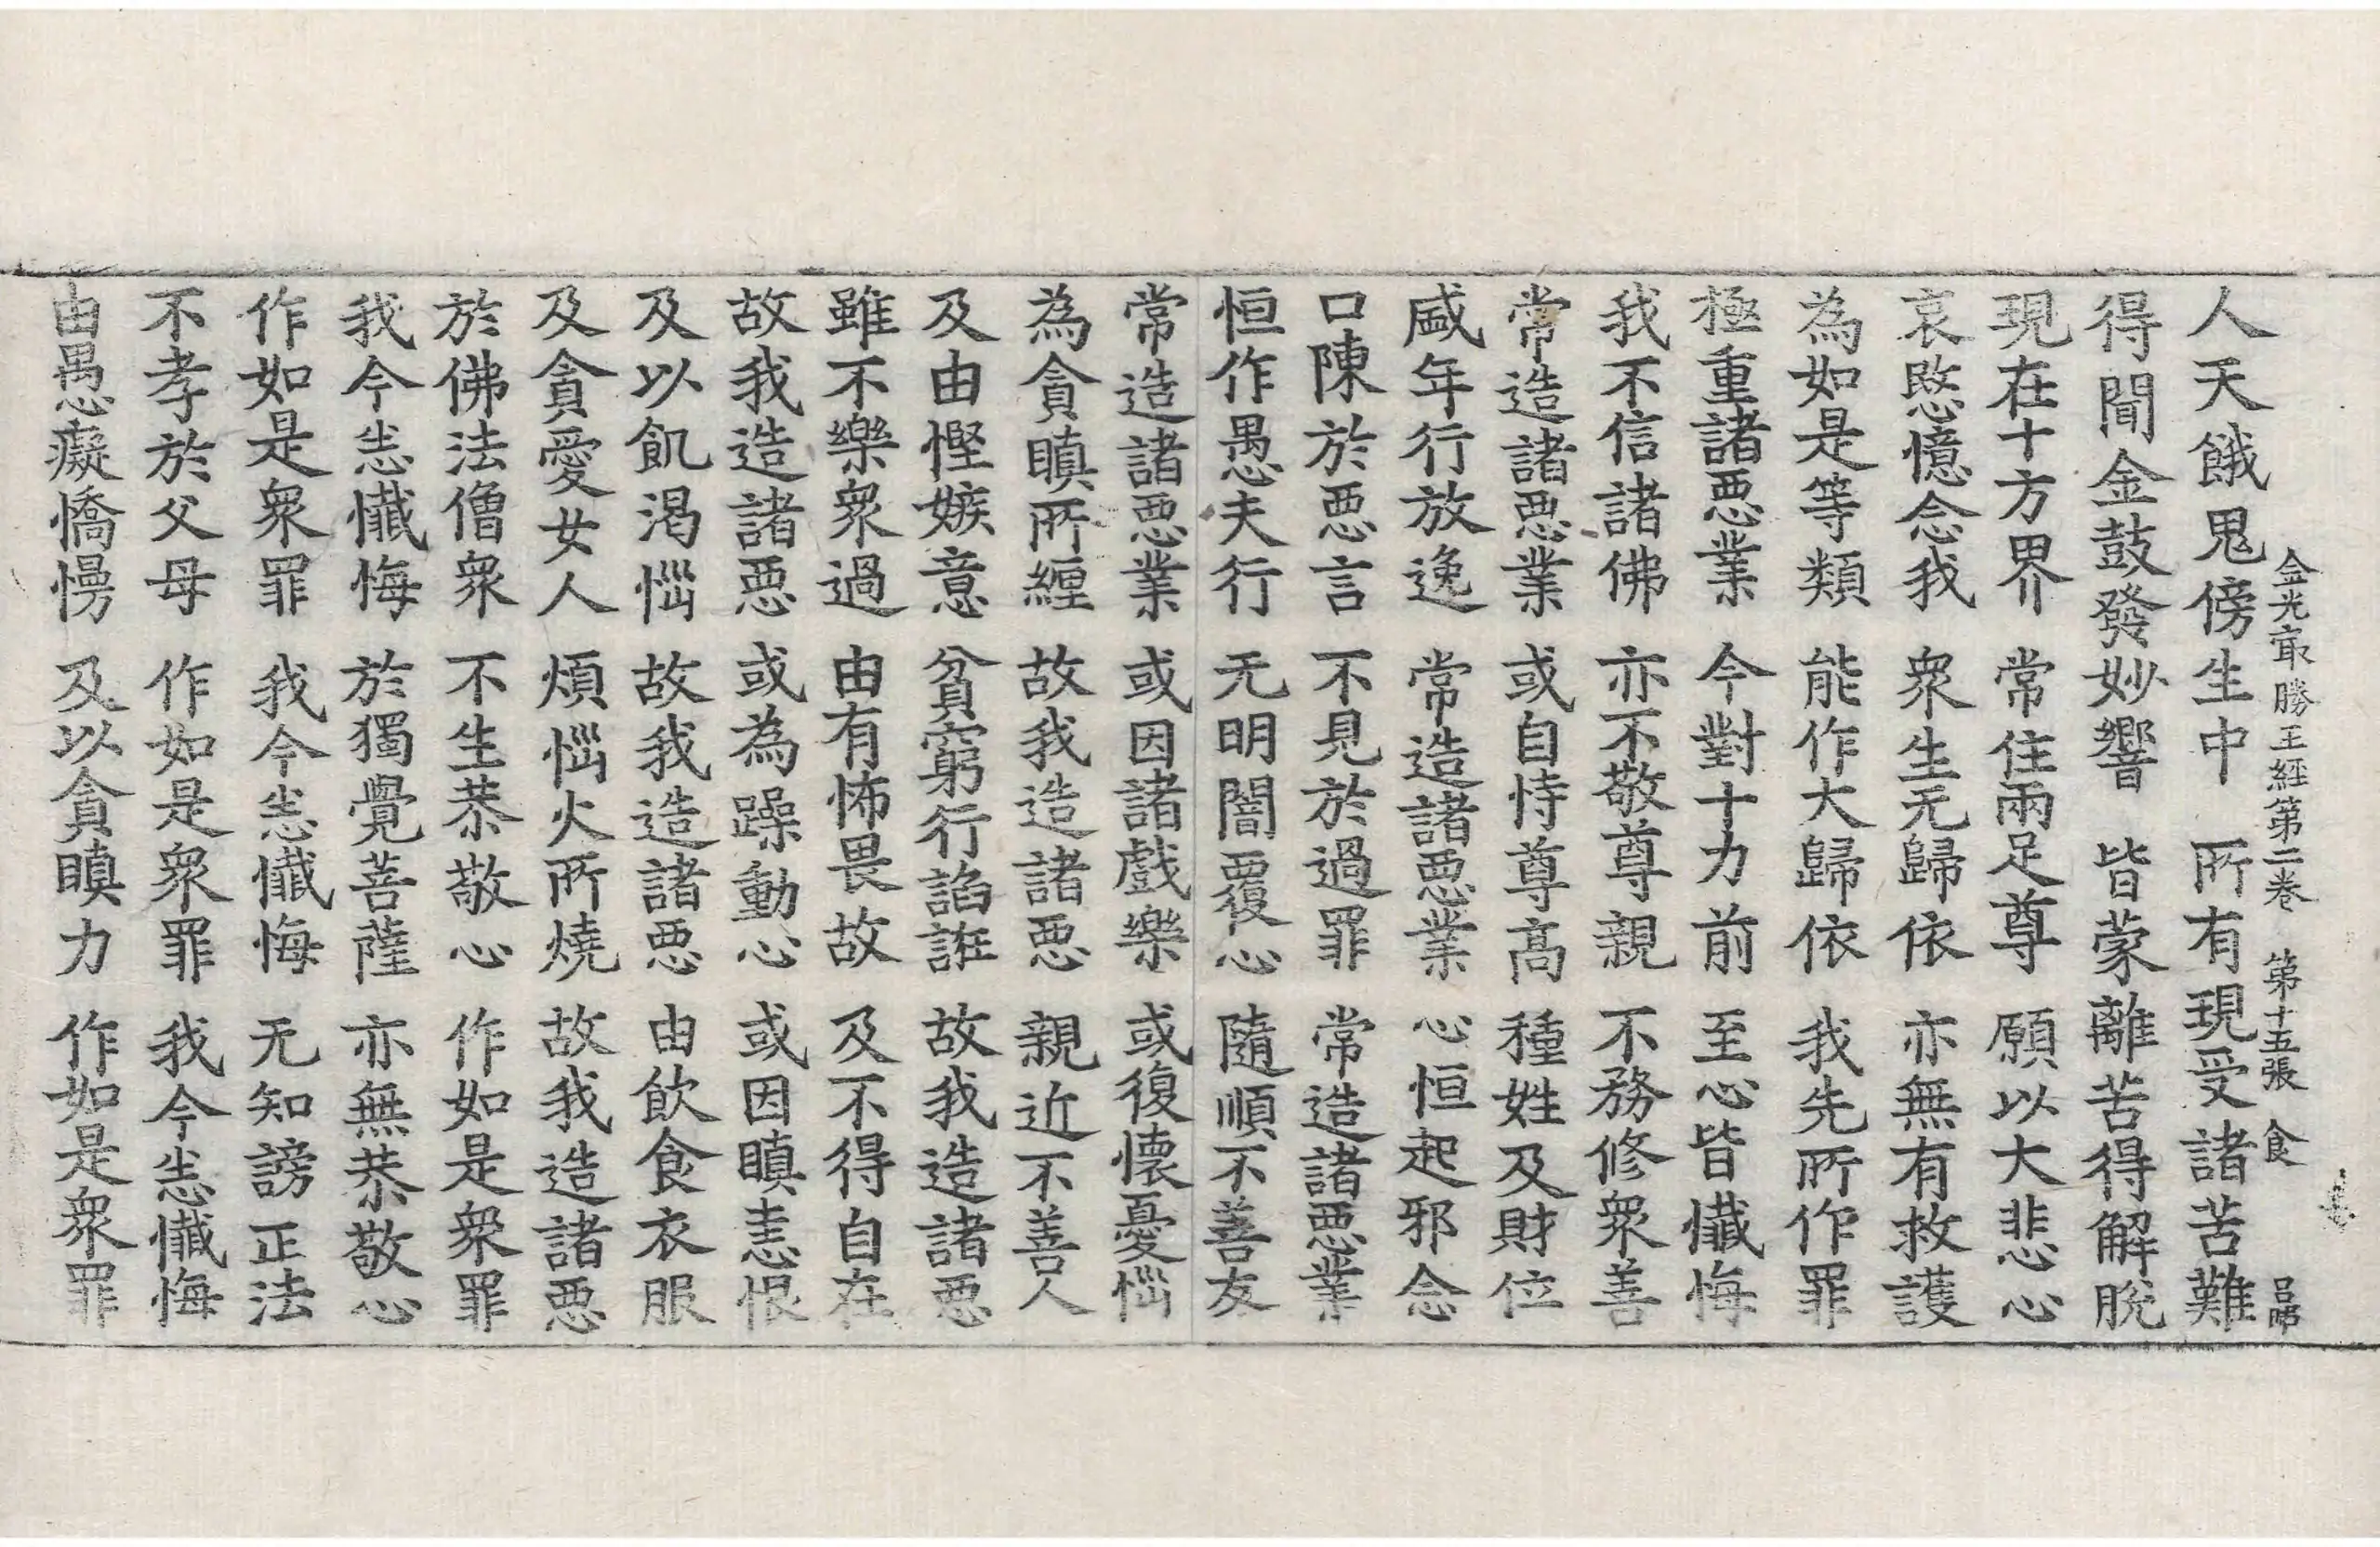 金光㝡勝王經第二卷　第十五張　食　吕昂
人天餓鬼傍生中　所有現受諸苦難
得聞金鼓發妙響　皆蒙離苦得解脫
現在十方界　常住兩足尊　願以大悲心
哀愍憶念我　衆生无歸依　亦無有救護
為如是等類　能作大歸依　我先所作罪
極重諸惡業　今對十力前　至心皆懺悔
我不信諸佛　亦不敬尊親　不務修衆善
常造諸惡業　或自恃尊高　種姓及財位
盛年行放逸　常造諸惡業　心恒起邪念
口陳於惡言　不見於過罪　常造諸惡業
恒作愚夫行　无明闇覆心　隨順不善友
常造諸惡業　或因諸戲樂　或復懷憂惱
為貪瞋所纏　故我造諸惡　親近不善人
及由慳嫉意　貧窮行諂誑　故我造諸惡
雖不樂衆過　由有怖畏故　及不得自在
故我造諸惡　或為躁動心　或因瞋恚恨
及以飢渴惱　故我造諸惡　由飲食衣服
及貪愛女人　煩惱火所燒　故我造諸惡
於佛法僧衆　不生恭敬心　作如是衆罪
我今悉懺悔　於獨覺菩薩　亦無恭敬心
作如是衆罪　我今悉懺悔　无知謗正法
不孝於父母　作如是衆罪　我今悉懺悔
由愚癡憍慢　及以貪瞋力　作如是衆罪